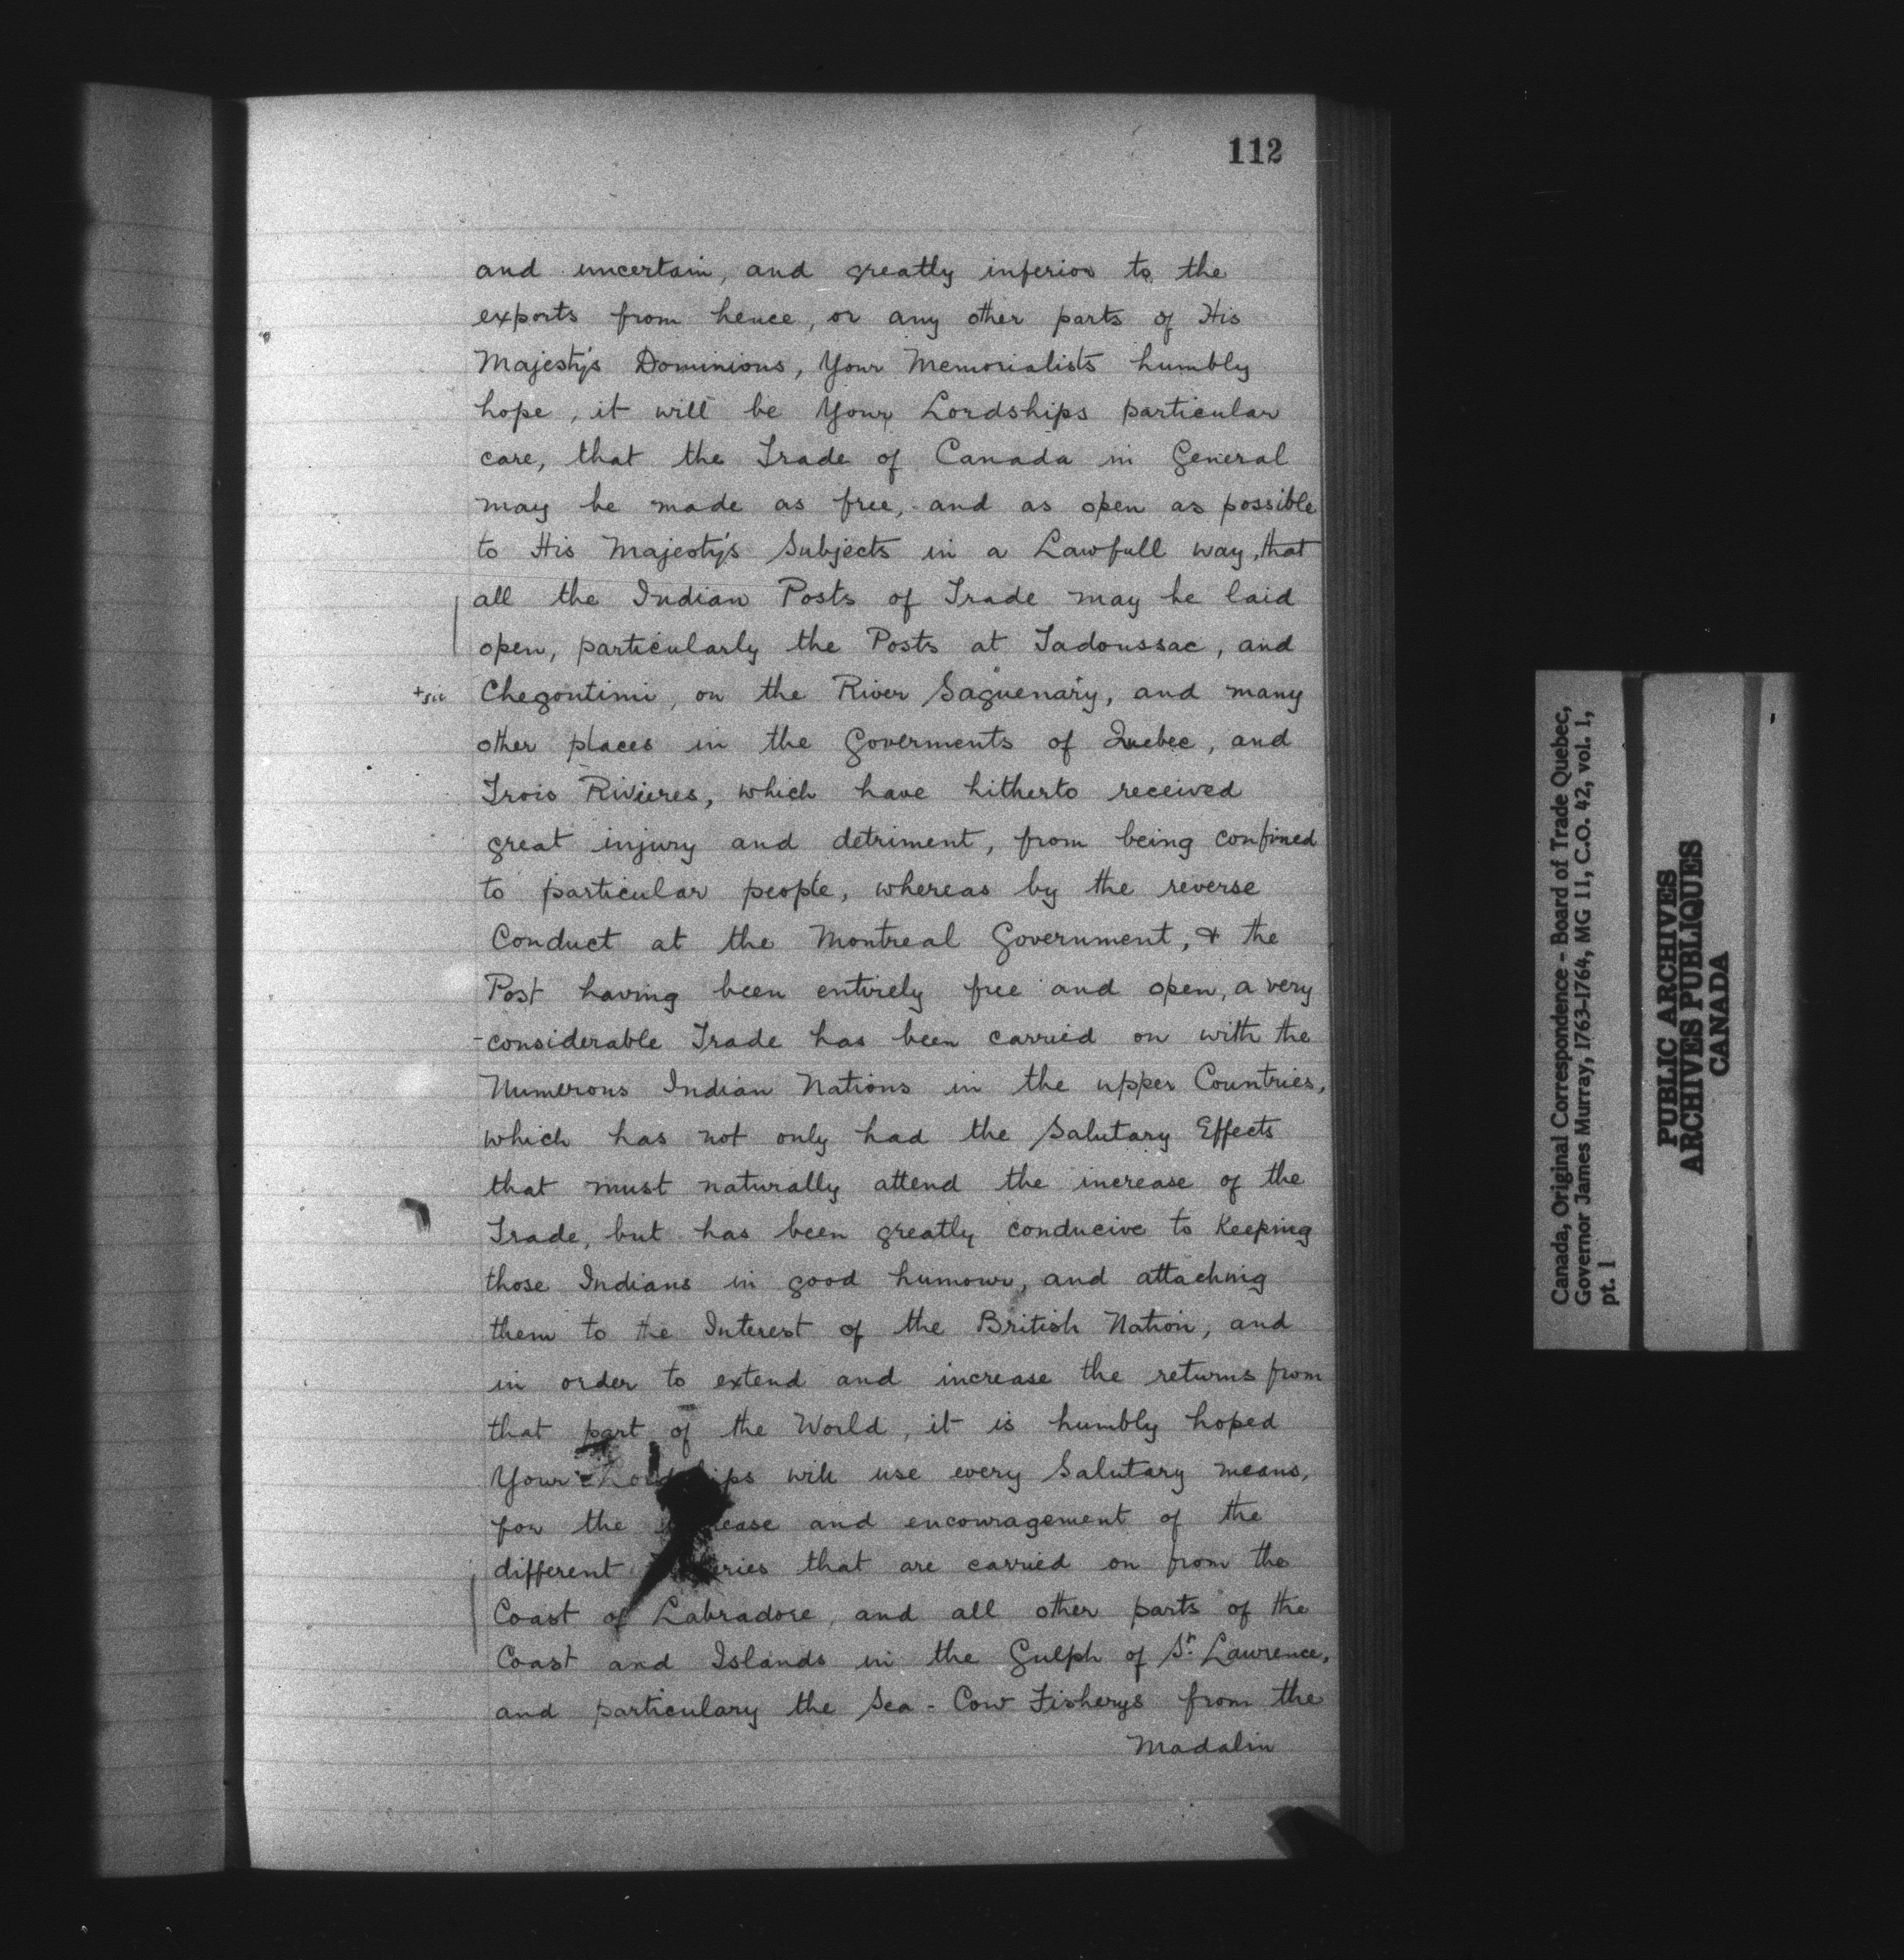 112
and uncertain, and greatly inferior to the
exports from hence, or any other parts of His
Majesty's Dominions, Your Memorialists humbly
hope, it will be Your Lordships particular
care, that the Trade of Canada in General
may be made as free, and as open as possible
to His Majesty's Subjects in a Lawfull way, that
all the Indian Posts of Trade may be laid
open, particularly the Posts at Tadoussac, and
+sic Chegoutimi, on the River Saguenary, and many
other places in the Goverments of Quebec, and
Trois Rivieres, which have hitherto received
great injury and detriment, from being confined
to particular people, whereas by the reverse
Conduct at the Montreal Government, & the
Post having been entirely free and open, a very
considerable Trade has been carried on with the
Numerous Indian Nations in the upper Countries,
which has not only had the Salutary Effects
that must naturally attend the increase of the
Trade, but has been greatly conducive to Keeping
those Indians in good humour, and attaching
them to the Interest of the British Nation, and
in order to extend and increase the returns from
that part of the World, it is humbly hoped
Your Lordships will use every Salutary means,
for the and encouragement of the
different that are carried on from the
Coast of Labradore, and all other parts of the
Coast and Islands in the Gulph of St. Lawrence,
and particulary the Sea-Cow Fisherys from the
Madalin
Canada, Original Correspondence - Board of Trade Quebec,
Governor James Murray, 1763-1764, MG 11, C.O. 42, vol. 1,
pt. 1
PUBLIC ARCHIVES
ARCHIVES PUBLIQUES
CANADA